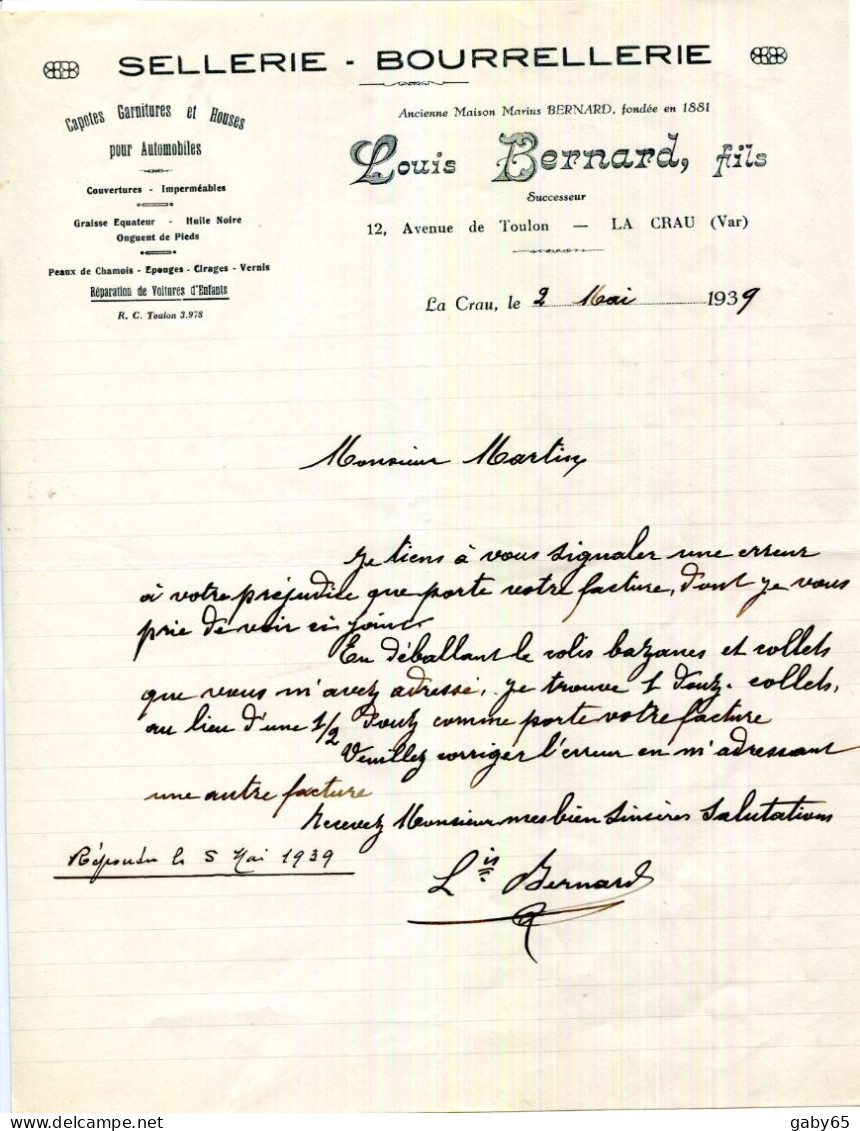 SELLERIE - BOURRELLERIE
Capotes Garnitures et Houses
pour Automobiles
Couvertures - Imperméables
Graisse Equateur - Huile Noire
Onguent de Pieds
Peaux de Chamois - Eponges - Cirages - Vernis
Réparation de Voitures d'Enfants
R. C. Toulon 3.978
Ancienne Maison Marius BERNARD, fondée en 1881
Louis Bernard, fils
Successeur
12, Avenue de Toulon — LA CRAU (Var)
La Crau, le 2 Mai 1939
Monsieur Martin
Je tiens à vous signaler une erreur
à votre préjudice que porte votre facture, dont je vous
prie de voir ci joint.
En déballant le colis bazanes et collets
que vous m'avez adressé, je trouve 1 douz. collets,
au lieu d'une 1/2 douz comme porte votre facture
Veuillez corriger l'erreur en m'adressant
une autre facture
Recevez Monsieur mes bien sincères salutations
Répondu le 5 Mai 1939
Lis Bernard
gaby65